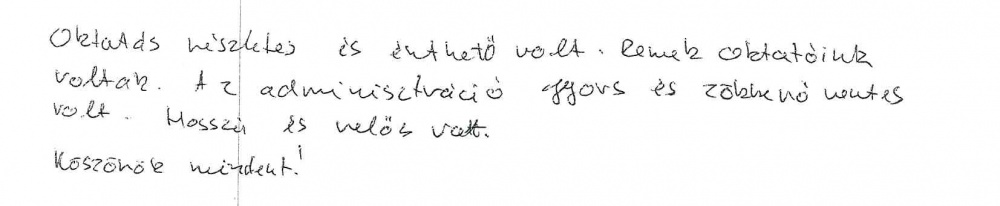 Oktatás részletes és érthető volt. Remek oktatóink
voltak. Az adminisztráció gyors és zökkenőmentes
volt. Hosszú és velős volt.
Köszönök mindent!